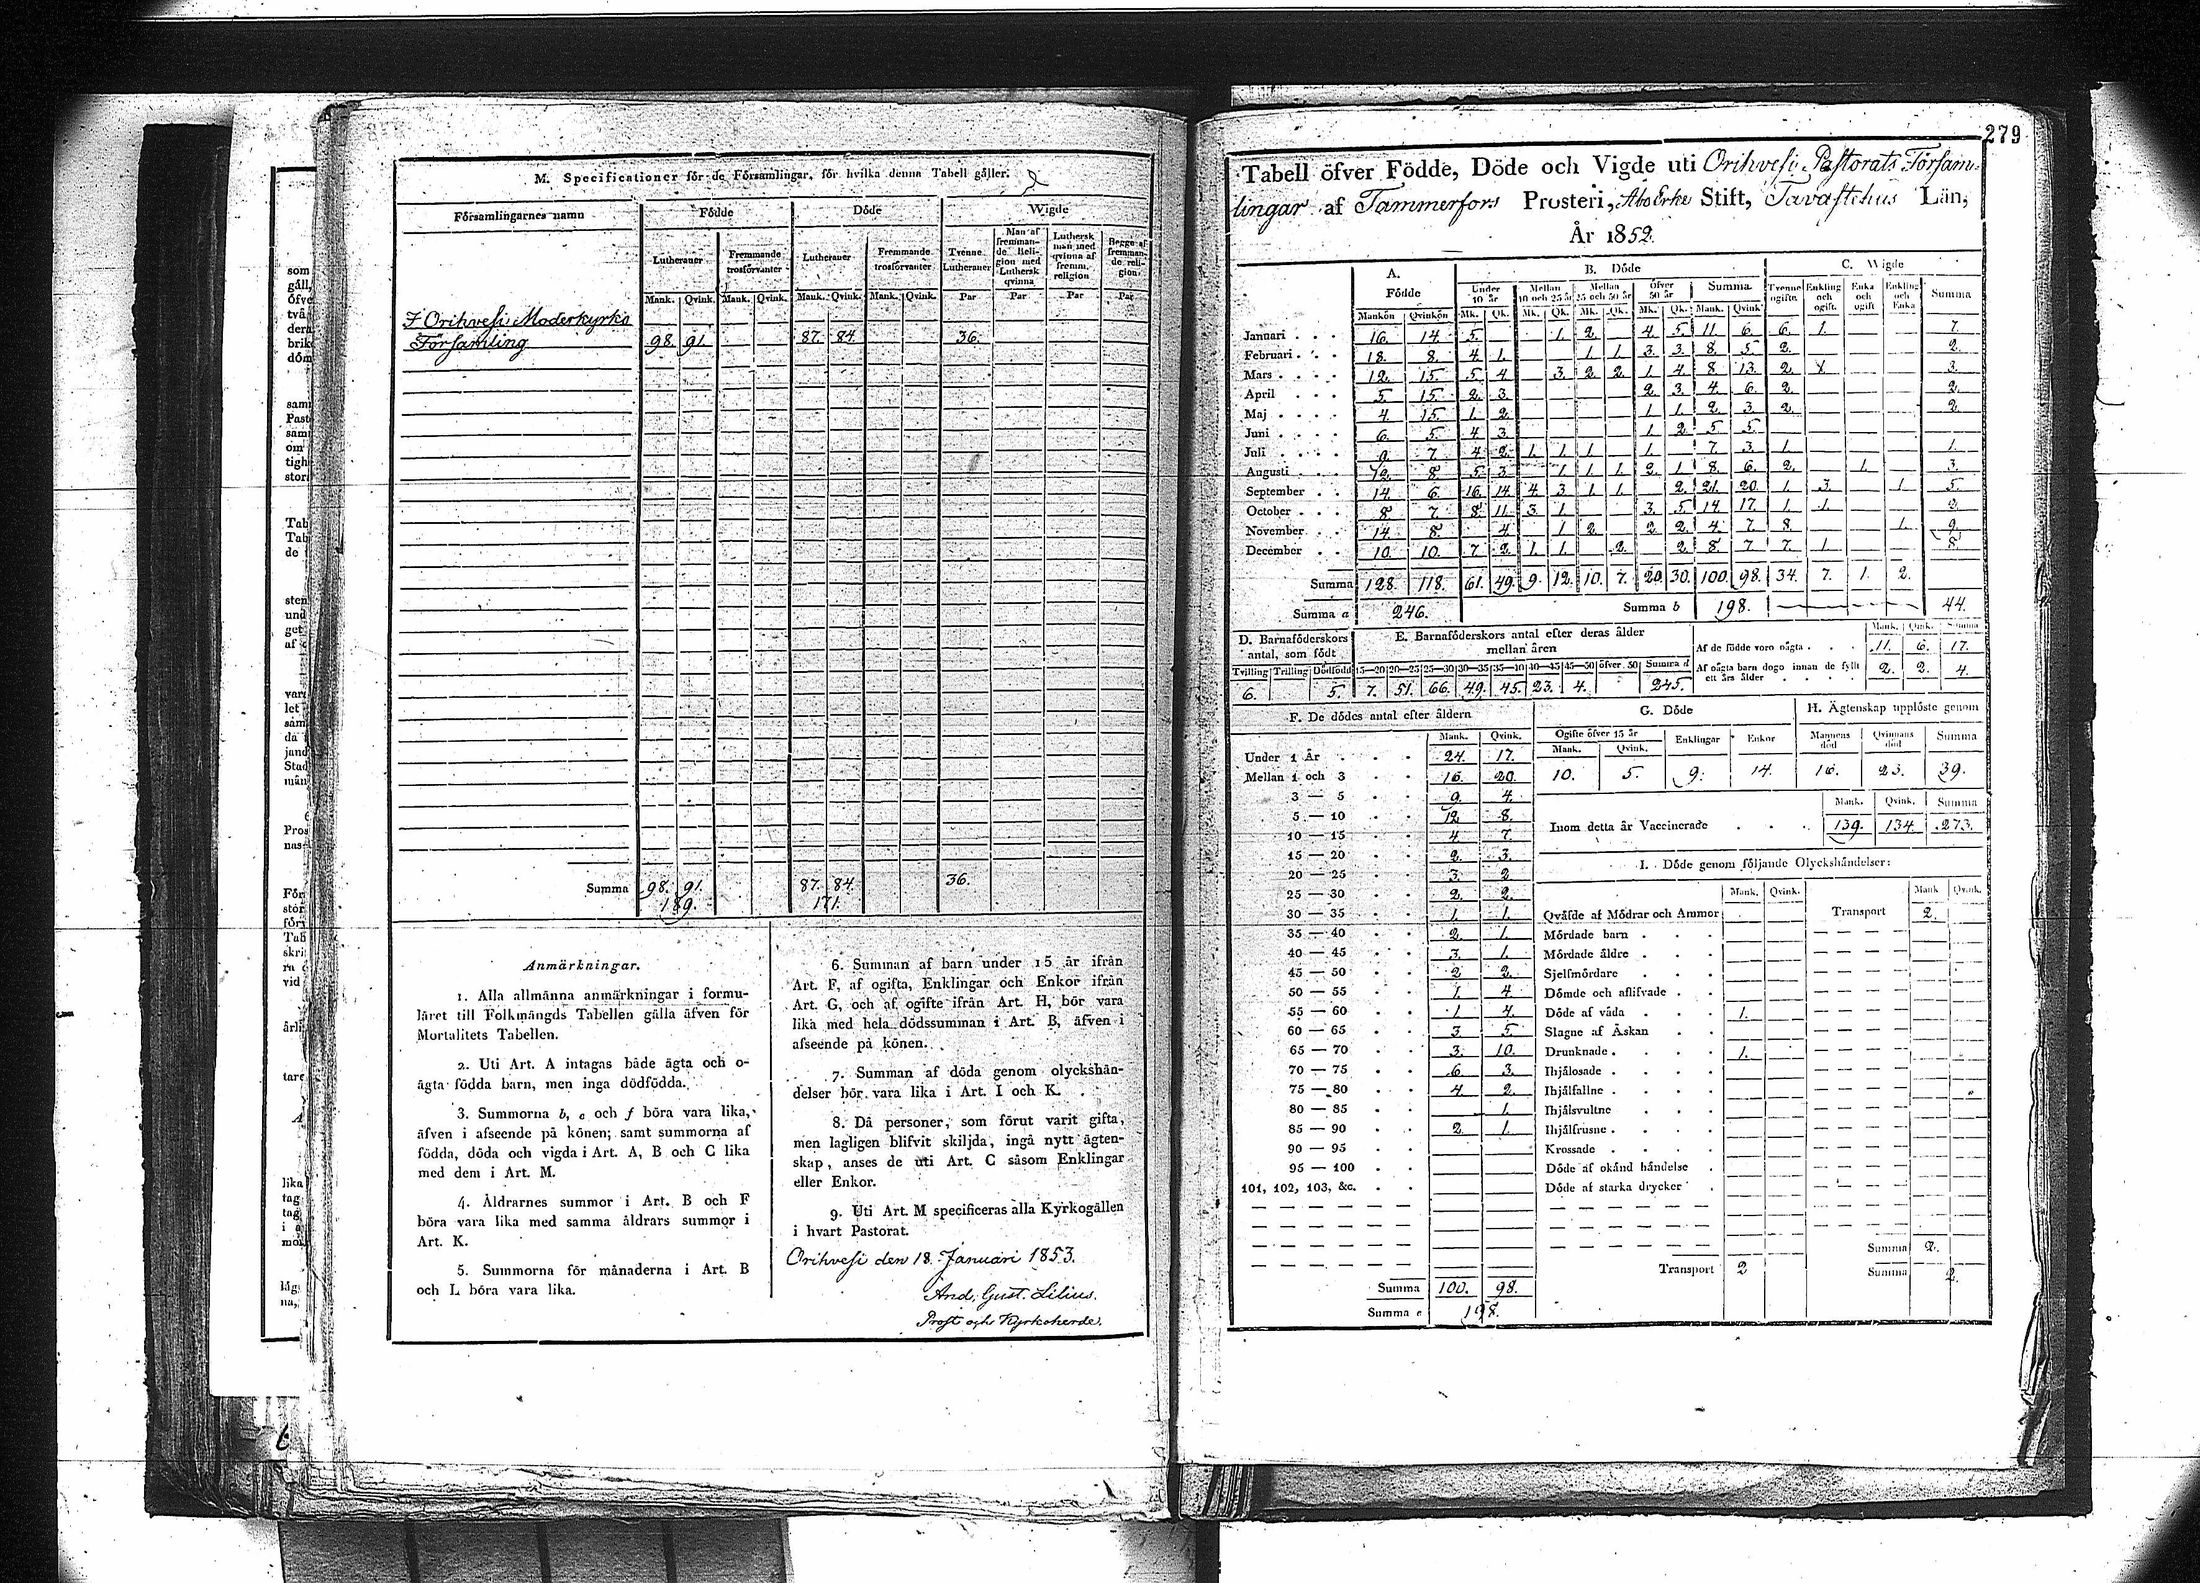 M. Specificationer för de Församlingar, för hvilka denna Tabell gäller.
Församlingarnes namn
Födde
Döde
Wigde
Lutheraner
Fremmande trosförvanter
Lutheraner
Fremmande trosförvanter
Tvenne Lutheraner
Man af fremmande Religion med Luthersk qvinna
Luthersk man med qvinna af fremm. religion
Begge af fremmande religion
Mank. Qvink. Mank. Qvink. Mank. Qvink. Mank. Qvink. Par Par Par Par
I Orihvesi Moderkyrko
Församling 98. 91. 87. 84. 36.
Summa 98. 91. 87. 84. 36.
189. 171.
Anmärkningar.
1. Alla allmänna anmärkningar i formu-
läret till Folkmängds Tabellen gälla äfven för
Mortalitets Tabellen.
2. Uti Art. A intagas både ägta och o-
ägta födda barn, men inga dödfödda.
3. Summorna b, e och f böra vara lika,
äfven i afseende på könen; samt summorna af
födda, döda och vigda i Art. A, B och C lika
med dem i Art. M.
4. Åldrarnes summor i Art. B och F
böra vara lika med samma åldrars summor i
Art. K.
5. Summorna för månaderna i Art. B
och L böra vara lika.
6. Summan af barn under 15 år ifrån
Art. F, af ogifta, Enklingar och Enkor ifrån
Art. G, och af ogifte ifrån Art. H, bör vara
lika med hela dödssumman i Art. B, äfven i
afseende på könen.
7. Summan af döda genom olyckshän-
delser bör vara lika i Art. I och K.
8. Då personer, som förut varit gifta,
men lagligen blifvit skiljda, ingå nytt ägten-
skap, anses de uti Art. C såsom Enklingar
eller Enkor.
9. Uti Art. M specificeras alla Kyrkogällen
i hvart Pastorat.
Orihvesi den 18. Januari 1853.
And. Gust. Lilius.
Prost och Kyrkoherde.
279
Tabell öfver Födde, Döde och Vigde uti Orihvesi Pastorats Försam-
lingar af Tammerfors Prosteri, Abo Erke Stift, Tavastehus Län,
År 1852.
A. Födde
B. Döde
C. Wigde
Under 10 år
Mellan 10 och 25 år
Mellan 25 och 50 år
Öfver 50 år
Summa
Tvenne ogifte
Enkling och ogift.
Enka och ogift
Enkling och Enka
Summa
Mankön Qvinkön Mk. Qk. Mk. Qk. Mk. Qk. Mk. Qk. Mank. Qvink
Januari 16. 14. 5. 1. 2. 4. 5. 11. 6. 6. 1. 7.
Februari 18. 8. 4. 1. 1. 1. 3. 3. 8. 5. 2. 2.
Mars 12. 15. 5. 4. 3. 2. 2. 1. 4. 8. 13. 2. 1. 3.
April 5. 15. 2. 3. 2. 3. 4. 6. 2. 2.
Maj 4. 15. 1. 2. 1. 1. 2. 3. 2. 2.
Juni 6. 5. 4. 3. 1. 2. 5. 5.
Juli 9. 7. 4. 2. 1. 1. 1. 1. 7. 3. 1. 1.
Augusti 12. 8. 5. 3. 1. 1. 1. 2. 1. 8. 6. 2. 1. 3.
September 14. 6. 16. 14. 4. 3. 1. 1. 2. 21. 20. 1. 3. 1. 5.
October 8. 7. 8. 11. 3. 1. 3. 5. 14. 17. 1. 1. 2.
November 14. 8. 4. 1. 2. 2. 2. 4. 7. 8. 1. 9.
December 10. 10. 7. 2. 1. 1. 2. 2. 8. 7. 7. 1. 8.
Summa 128. 118. 61. 49. 9. 12. 10. 7. 20. 30. 100. 98. 34. 7. 1. 2.
Summa a 246. Summa b 198. 44.
D. Barnaföderskors antal, som födt
E. Barnaföderskors antal efter deras ålder mellan åren
Tvilling Trilling Dödfödd 15—20 20—25 25—30 30—35 35—40 40—45 45—50 öfver 50 Summa d
6. 5. 7. 51. 66. 49. 45. 23. 4. 245.
Mank. Qvink. Summa
Af de födde voro oägta 11. 6. 17.
Af oägta barn dogo innan de fyllt ett års ålder 2. 2. 4.
F. De dödes antal efter åldern
Mank. Qvink.
Under 1 År 24. 17.
Mellan 1 och 3 16. 20.
3 — 5 9. 4.
5 — 10 12. 8.
10 — 15 4. 7.
15 — 20 2. 3.
20 — 25 3. 2
25 — 30 2. 2.
30 — 35 1. 1.
35 — 40 2. 1.
40 — 45 3. 1.
45 — 50 2 2.
50 — 55 1. 4.
55 — 60 1 4.
60 — 65 3 5.
65 — 70 3. 10.
70 — 75 6 3.
75 — 80 4. 2.
80 — 85 1.
85 — 90 2. 1.
90 — 95
95 — 100
101, 102, 103, &c.
Summa 100. 98.
Summa e 198.
G. Döde
Ogifte öfver 15 år
Mank. Qvink. Enklingar Enkor
10. 5. 9. 14.
H. Ägtenskap upplöste genom
Mannens död Qvinnans död Summa
16. 23. 39.
Mank. Qvink. Summa
Inom detta år Vaccinerade 139. 134. 273.
I. Döde genom följande Olyckshändelser:
Mank. Qvink. Mank Qvink.
Qväfde af Mödrar och Ammor Transport 2.
Mördade barn
Mördade äldre
Sjelfmördare
Dömde och aflifvade
Döde af våda 1.
Slagne af Åskan
Drunknade 1.
Ihjälosade
Ihjälfallne
Ihjälsvultne
Ihjälfrusne
Krossade
Döde af okänd händelse
Döde af starka drycker
Summa 2.
Transport 2 Summa 2.